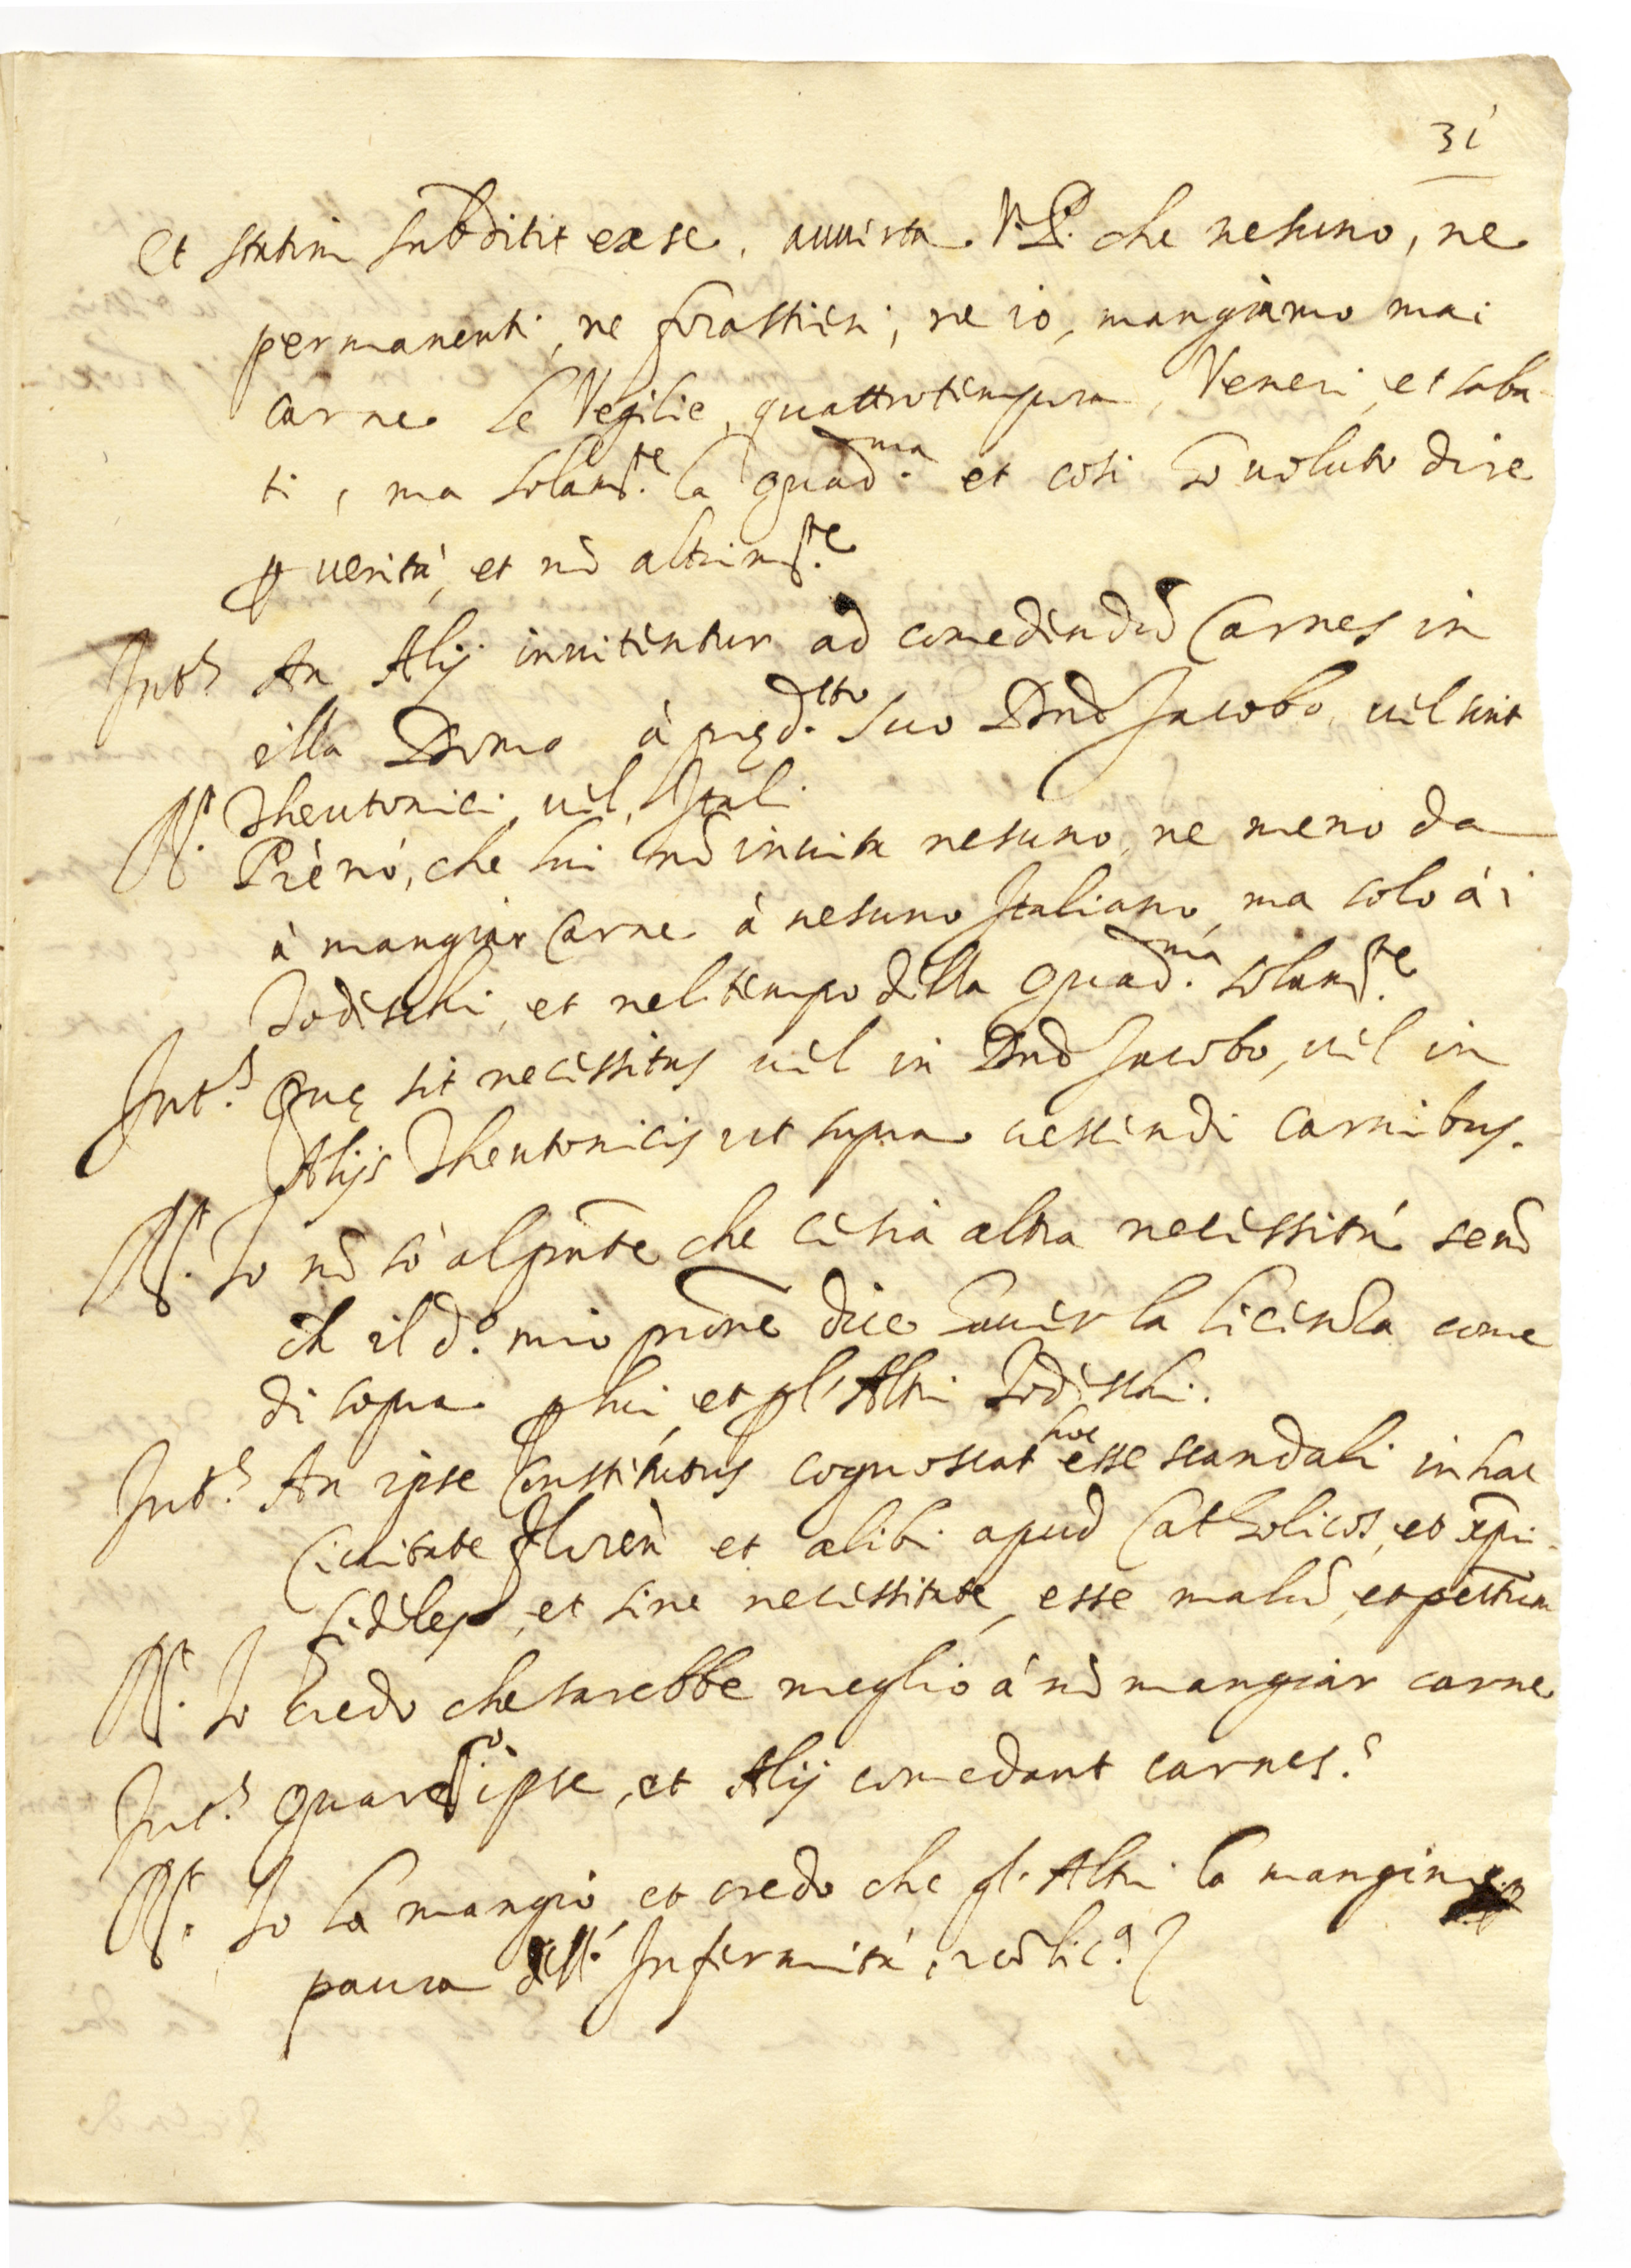 31
Et statim subdidit ex se, avverta V.P. che nesuno, ne
permanenti, ne forastieri, ne io, mangiamo mai
carne le Vegilie, quattrotempora, Veneri, et saba-
ti, ma solam.te la quad.ma et così ho voluto dire
p verità, et nō altrim.te
Int.s An Alij invitentur ad comedendū Carnes in
illa Domo à pręd.tto suo Dnō Jacobo, vel sint
Theutonici vel Itali
R.t Prènò, che lui nō invita nesuno, ne meno da
à mangiar Carne à nesuno Italiano, ma solo à i
Todeschi, et nel tempo della quad.ma solam.te
Int.s Quę sit necessitas vel in Dnō Jacobo, vel in
Alijs Theutonicis ut supra vescendi carnibus.
R.t Io nō sò al pnte che ci sia altra necessità senō
ch il d.o mio pnōne dice haver la licenza come
di sopra p lui et p l'Altri Todeschi.
Int.s An ipse Constitutus cognoscat hoc esse scandali in hac
Civitate Floren et alibi apud Catholicos, et xpi-
fideles, et sine necessitate, esse malū, et pettum
R.t Io Credo che sarebbe meglio à nō mangiar carne
Int.s quare ipse, et Alij comedant carnes?
R.t Io la mangio, et credo che gl'Altri la mangin
paura dell'Infermità,